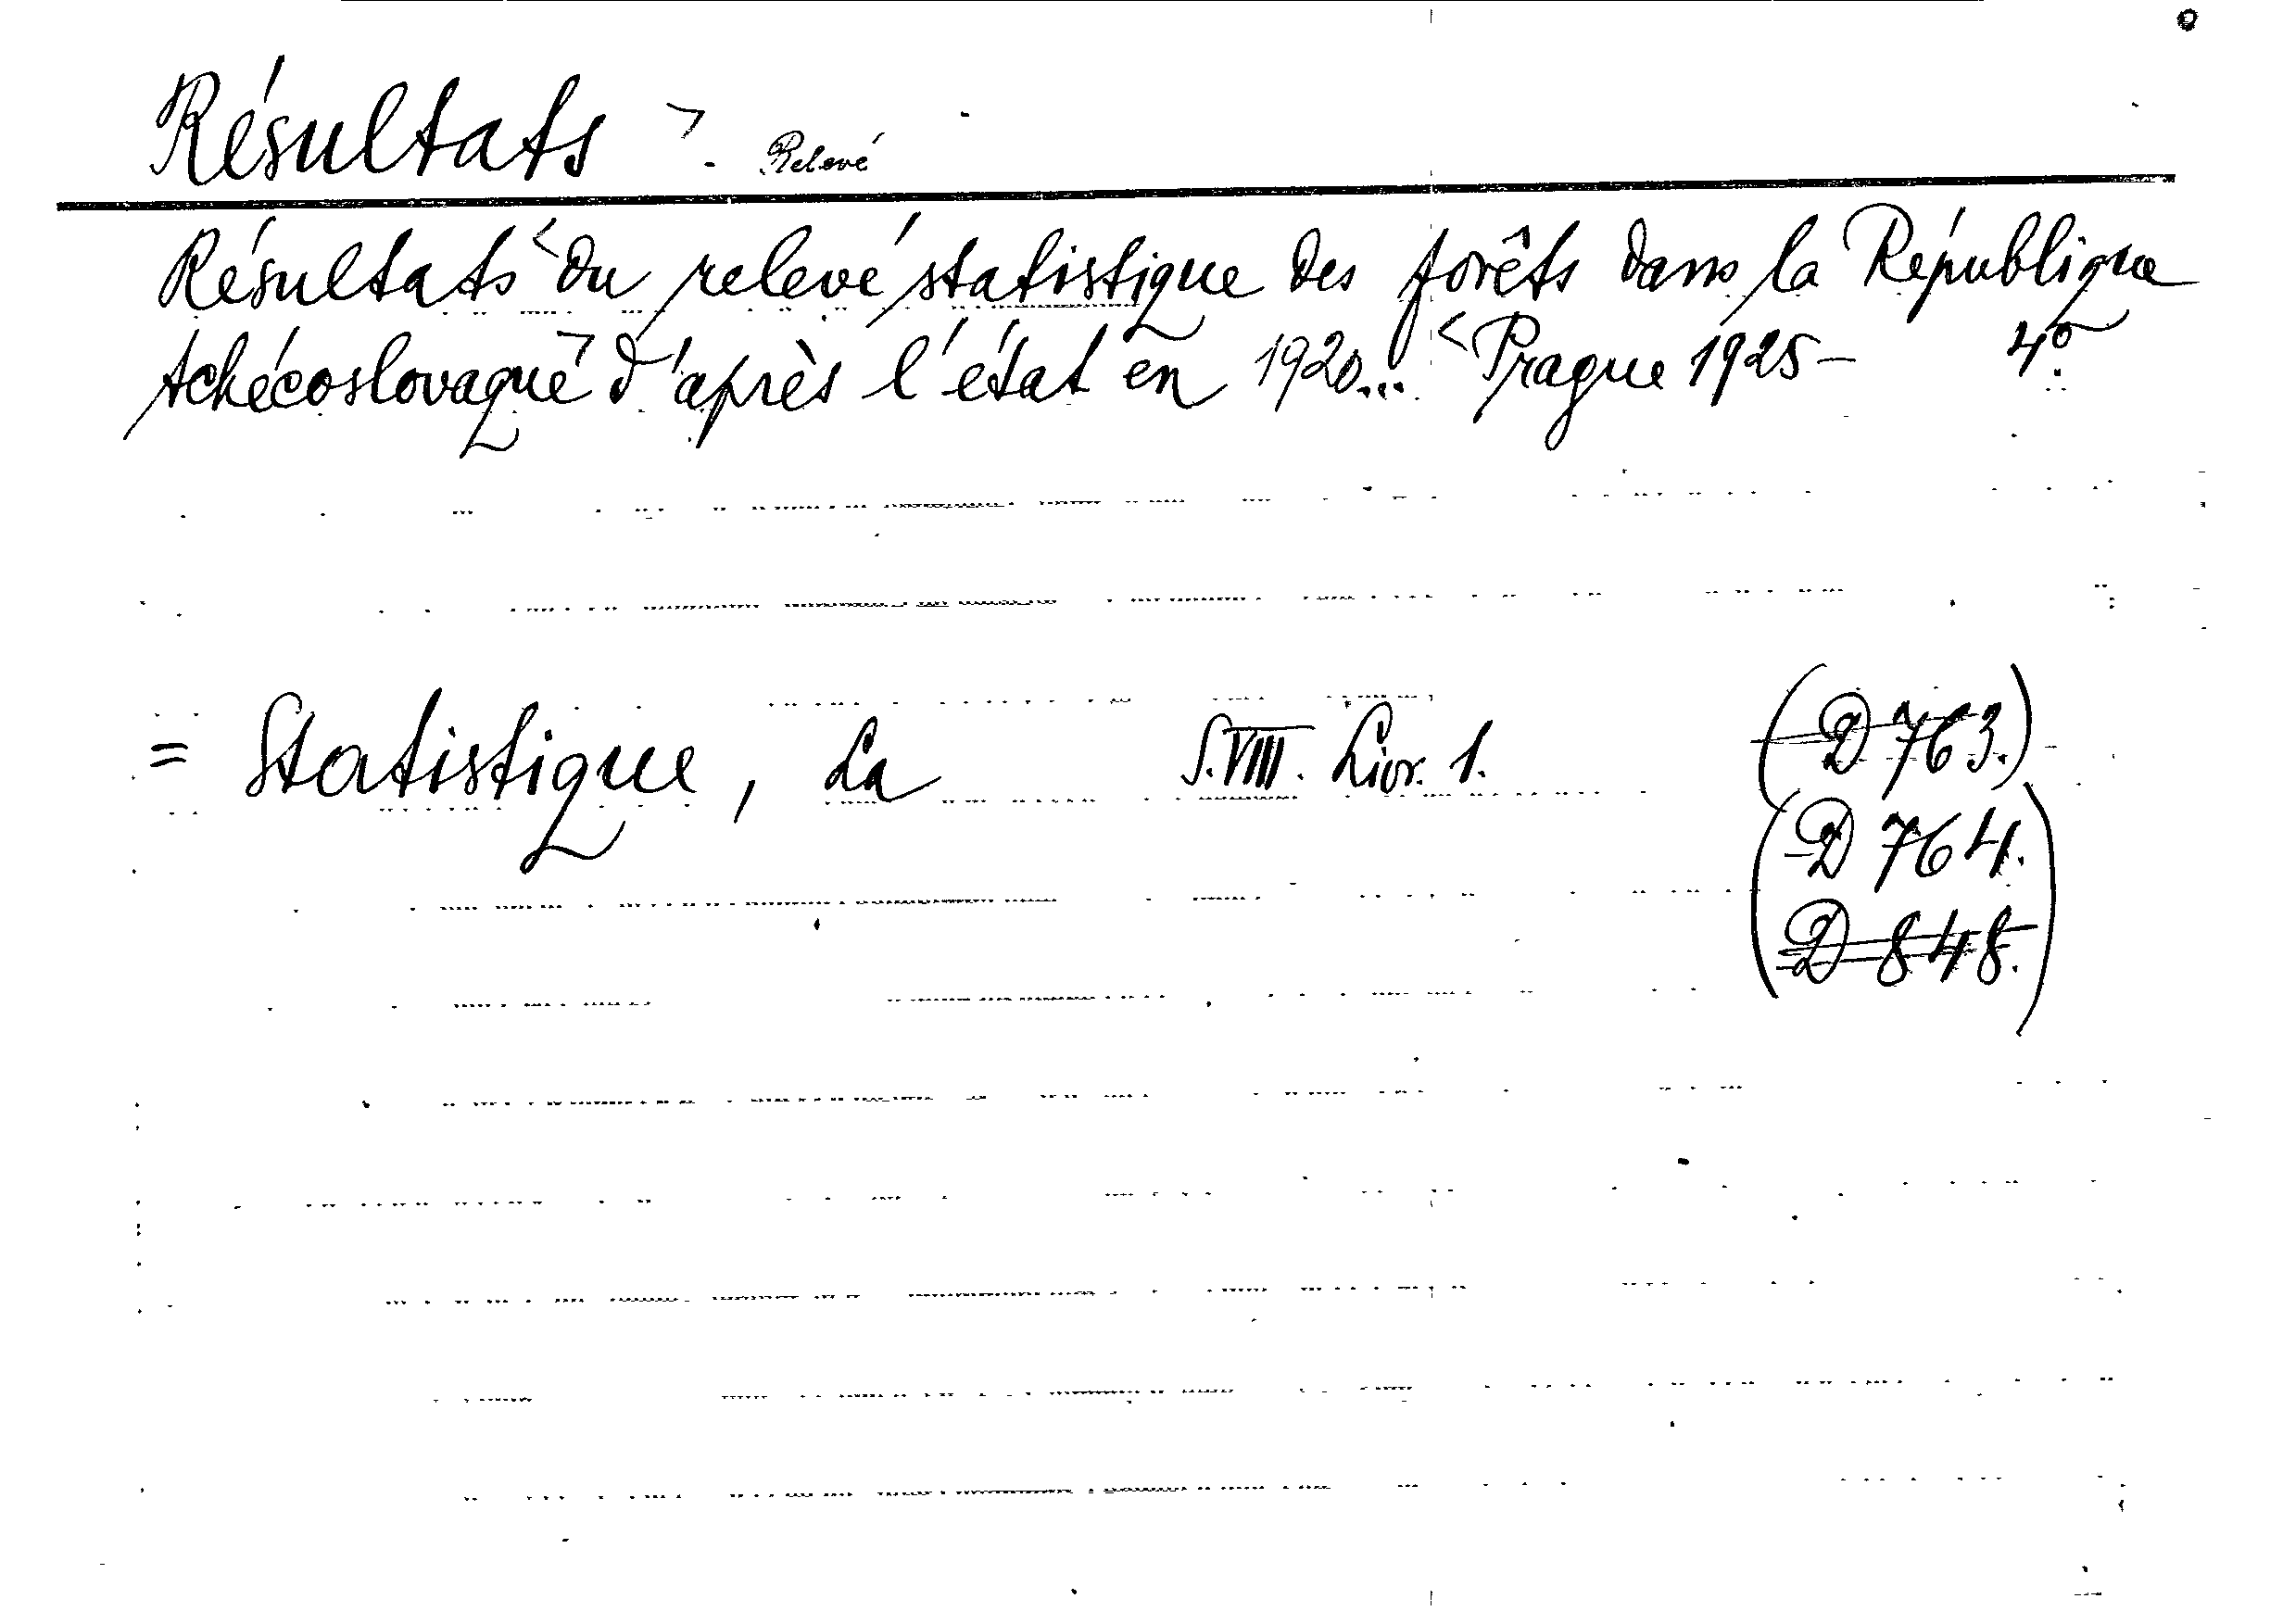 Résultats >. Relevé
Résultats < du relevé statistique des forêts dans la République
tchécoslovaque > d'après l'état en 1920... < Prague 1925- 4°.
= Statistique, La S.VIII. Livr. 1. (D 763.)
(D 764.
D 848.)